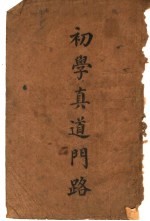 初學真道門路